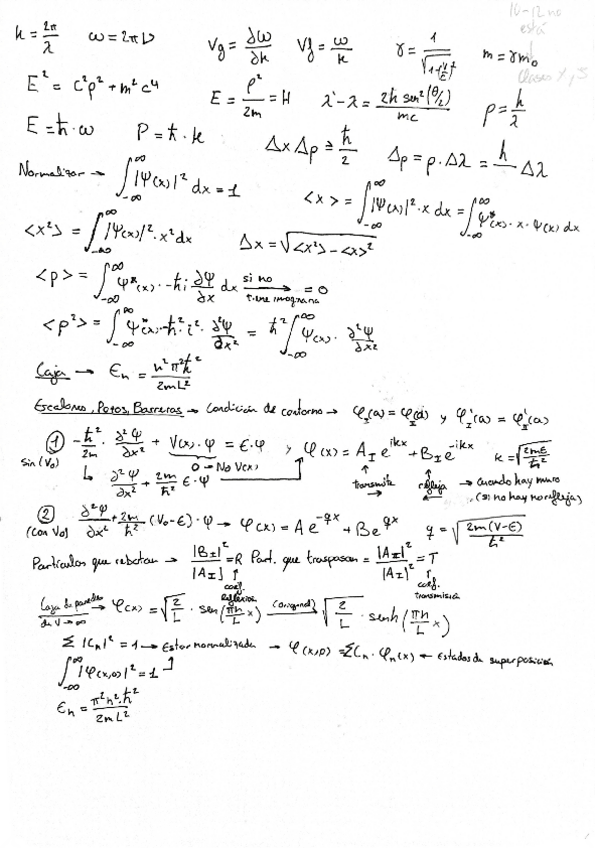 14-12 no
está
Clases 4, 5
k = 2π/λ   ω = 2πν   Vg = ∂ω/∂k   Vf = ω/k   γ = 1/√(1+(v/c)²)   m = γm₀
E² = c²p² + m²c⁴   E = p²/2m = H   λ'-λ = 2h sen²(θ/2)/mc   p = h/λ
E = ħ·ω   P = ħ·k   Δx Δp ≥ ħ/2   Δp = p·Δλ = h/ Δλ
Normalizar → ∫_{-∞}^{∞} |Ψ(x)|² dx = 1   <x> = ∫_{-∞}^{∞} |Ψ(x)|²·x dx = ∫_{-∞}^{∞} Ψ*(x)·x·Ψ(x) dx
<x²> = ∫_{-∞}^{∞} |Ψ(x)|²·x² dx   Δx = √(<x²> - <x>²)
<p> = ∫_{-∞}^{∞} Ψ*(x)·-ħi ∂Ψ/∂x dx si no tiene imaginaria → = 0
<p²> = ∫_{-∞}^{∞} Ψ*(x)·ħ²·i²·∂²Ψ/∂x² = ħ² ∫_{-∞}^{∞} Ψ(x)·∂²Ψ/∂x²
Caja → Ɛn = n²π²ħ²/2mL²
Escalones, Potos, Barreras → Condición de contorno → φI(a) = φII(a) y φ'I(a) = φ'II(a)
① -ħ²/2m · ∂²Ψ/∂x² + V(x)·φ = Ɛ·φ y φ(x) = A_I e^{ikx} + B_I e^{-ikx}   k = √(2mƐ/ħ²)
sin (V₀)   0 → No V(x)
↳ ∂²Ψ/∂x² + 2m/ħ² Ɛ·Ψ   transmite → refleja → cuando hay muro
(si no hay no refleja)
② ∂²Ψ/∂x² + 2m/ħ² (V₀-Ɛ)·φ → φ(x) = A e^{-qx} + B e^{qx}   q = √(2m(V-Ɛ)/ħ²)
(con V₀)
Partículas que rebotan → |B_I|²/|A_I| = R   Part. que traspasan = |A_II|²/|A_I|² = T
coef. reflexión   coef. transmisión
Caja de paredes de V→∞ → φ(x) = √(2/L) · sen(πn/L x) (original) → √(2/L) · senh(πn/L x)
Σ |Cn|² = 1 → Estar normalizada → φ(x,0) = ΣCn·φn(x) ← Estados de superposición
∫_{-∞}^{∞} |φ(x,0)|² = 1
Ɛn = π²n²·ħ²/2mL²